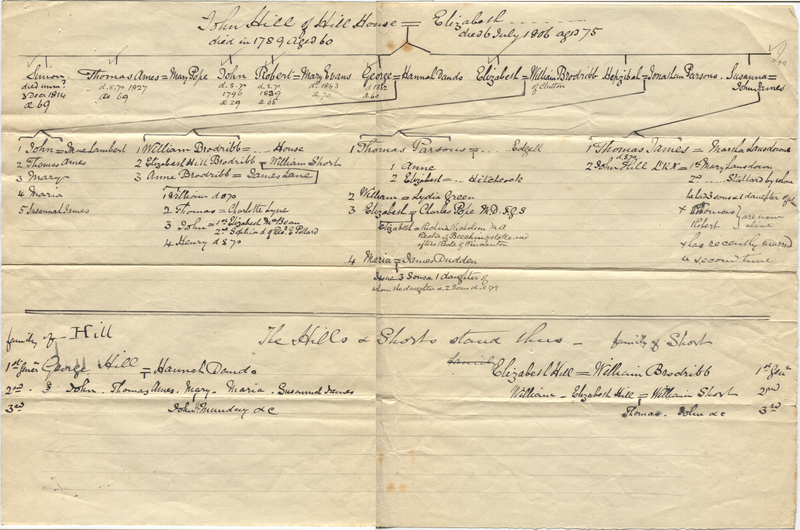 John Hill of Hill House = Elizabeth
died in 1789 Aged 60 died 6 July 1806 aged 75
Simon Thomas Ames = Mary Pope John Robert = Mary Evans George = Hannah Dando Elizabeth = William Brodribb Hepzibah = Jonathan Parsons. Susanna =
died unm? d.s.p. 1827 d.s.p. d.s.p. d. 1843 d 1832 of Clutton John James
3 Dec. 1814 1796 1839
a 69 a 69 a 29 a 65
1 John = Jane Lambert 1 William Brodribb = ... House 1 Thomas Parsons = ... Edgell 1 Thomas James = Martha Lansdown
2 Thomas Ames 2 Elizabeth Hill Brodribb = William Short 1 Anne d.s.p. 2 John Hill = 1st Mary Lansdown
3 Mary 3 Anne Brodribb = James Lane 2 Elizabeth = Hitchcock 2nd
4 Maria 1 William d s p 2 William = Lydia Green
5 Susannah James 2 Thomas = Charlotte Lyne 3 Elizabeth = Charles Pope M.D. F.G.S Thomas are now
3 John = 1st Elizabeth Robert alive
2nd Sophia d of Rev. G Pollard
4 Henry d s p x has recently married
4 Maria = James Dudden a second time
Issue 3 Sons & 1 daughter of
whom the daughter & 2 Sons d.s.p.
family of Hill The Hills & Shorts stand thus - family of Short
1st Gen George Hill = Hannah Dando Elizabeth Hill = William Brodribb 1st Gen
2nd John. Thomas Ames. Mary. Maria. Susannah James William - Elizabeth Hill = William Short 2nd
3rd John Munday &c Thomas. John &c 3rd